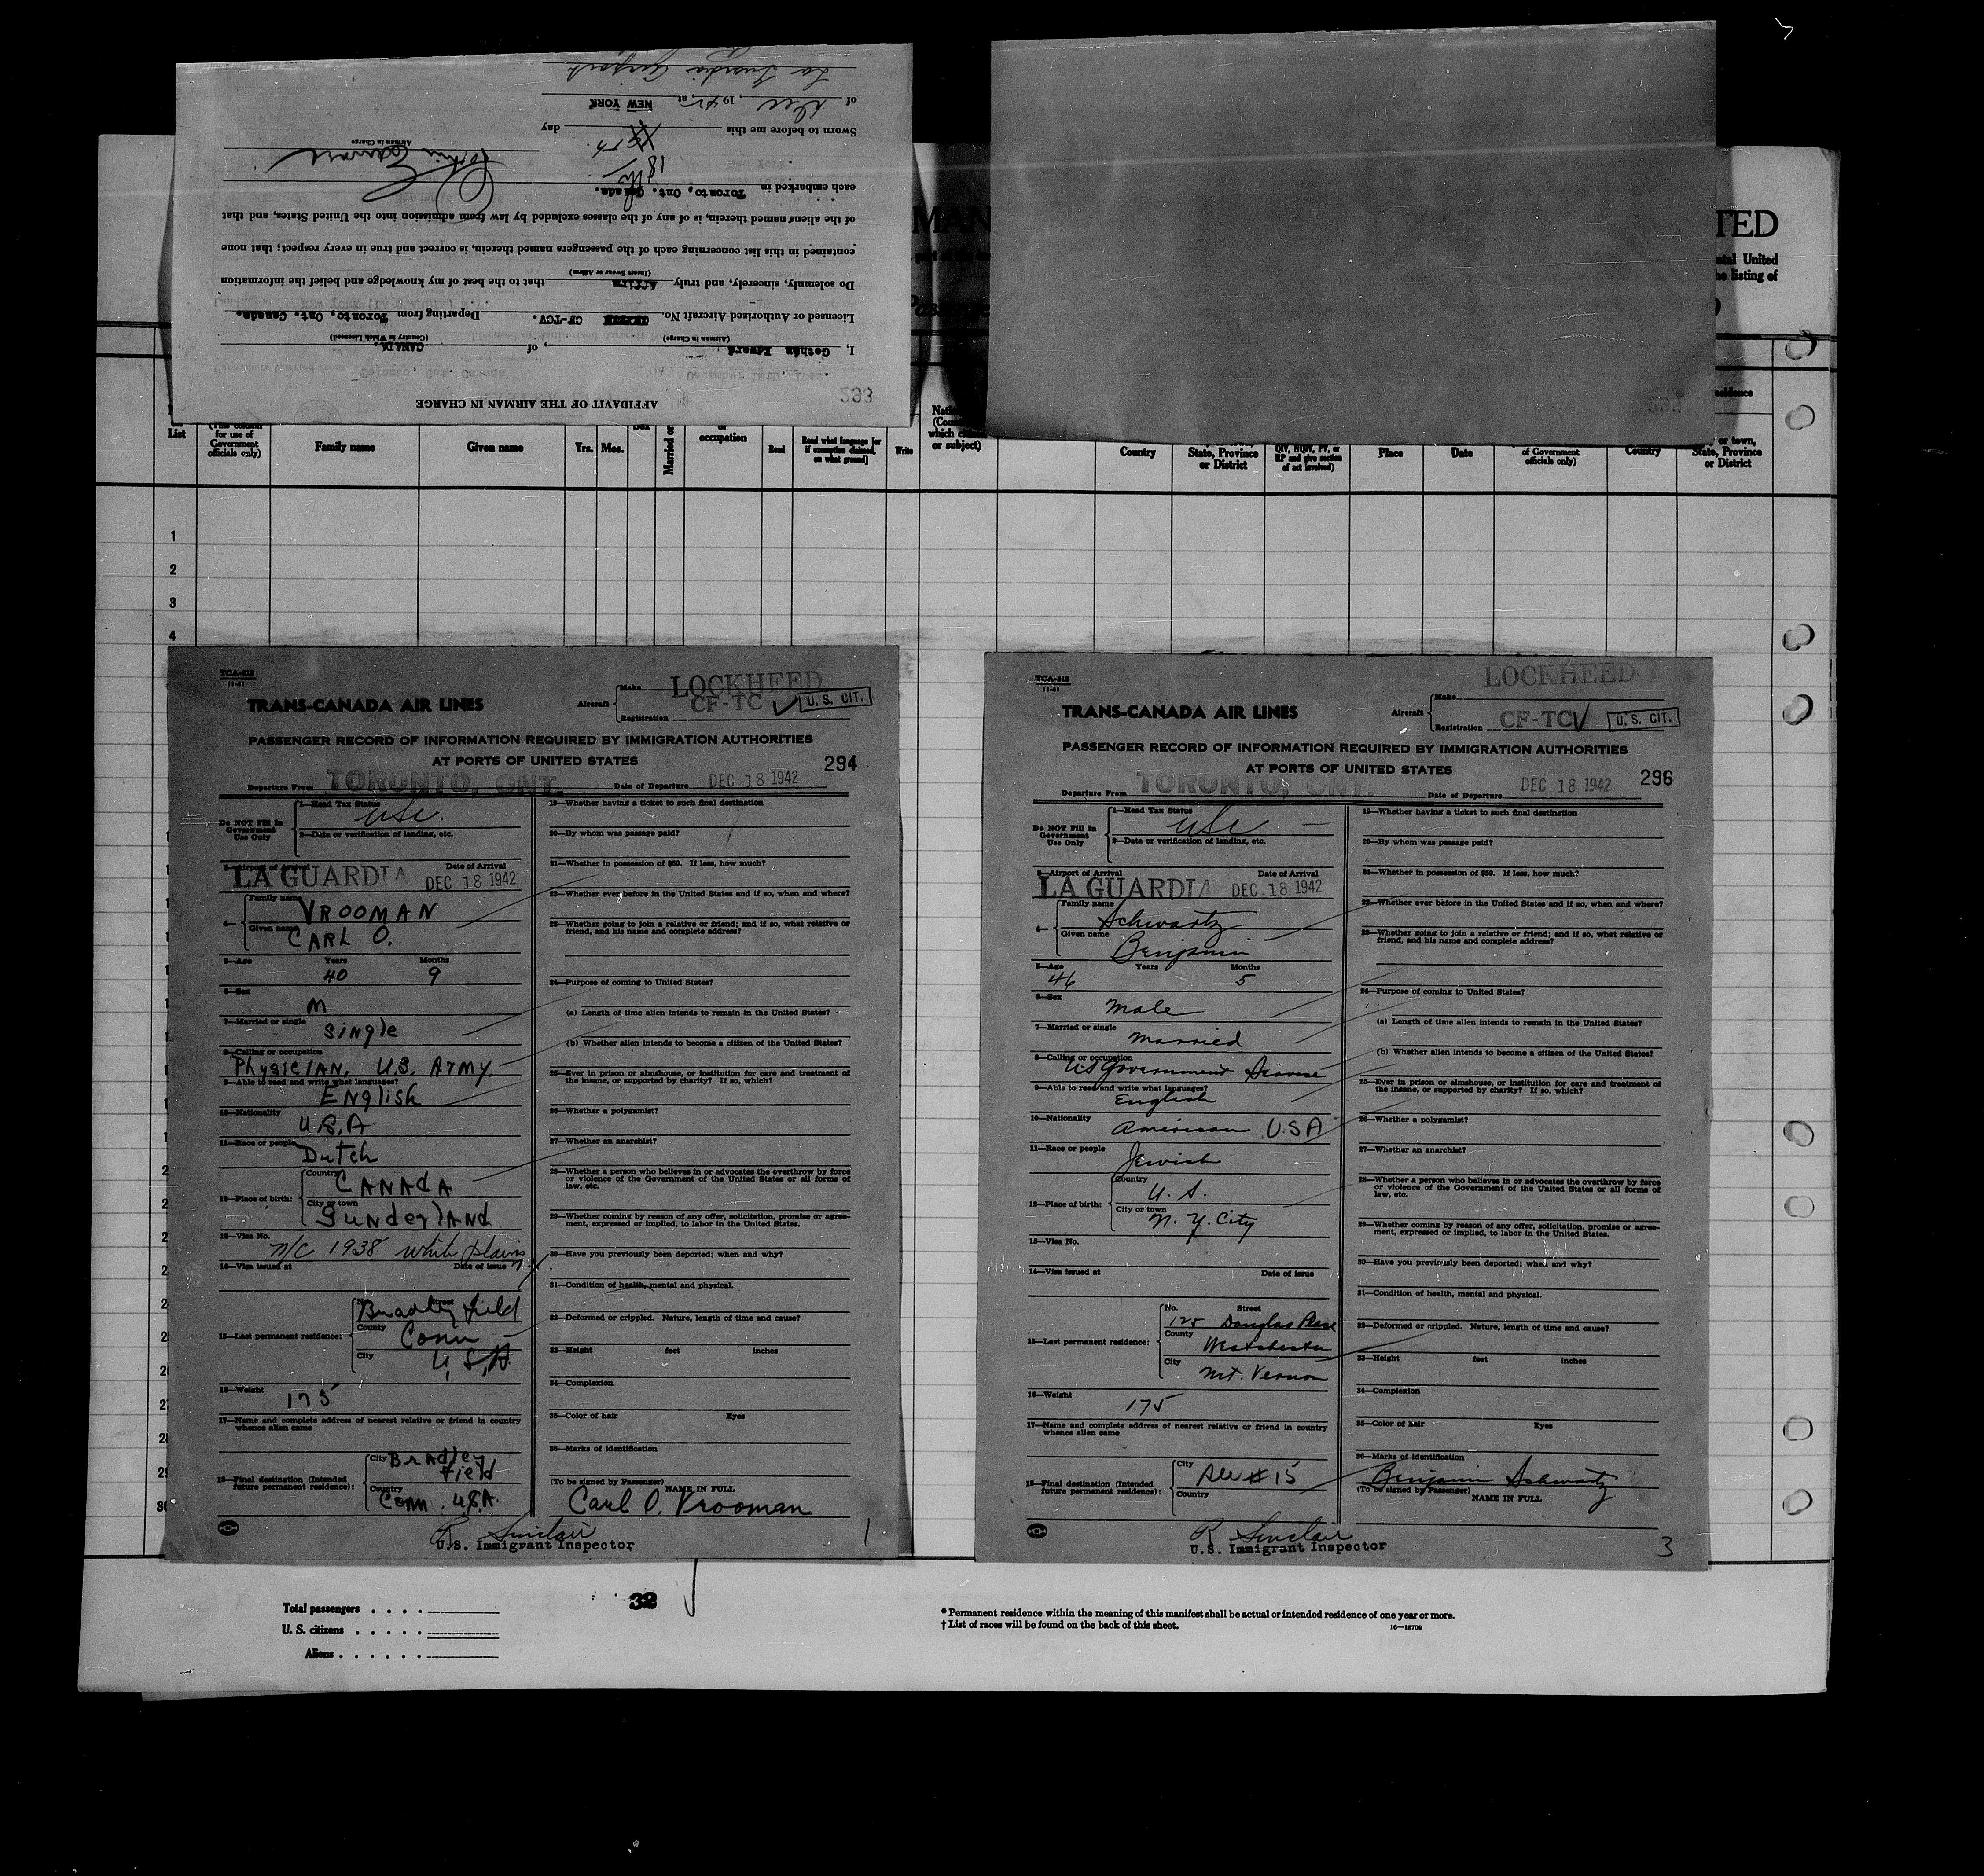 AFFIDAVIT OF THE AIRMAN IN CHARGE
293
I, Gothin Edward, of CANADA.
(Airman in Charge) (Country in Which Licensed)
Licensed or Authorized Aircraft No. CF-TCV. Departing from Toronto, Ont. Canada.
Do solemnly, sincerely, and truly Affirm that to the best of my knowledge and belief the information
(Insert Swear or Affirm)
contained in this list concerning each of the passengers named therein, is correct and true in every respect; that none
of the aliens named therein, is of any of the classes excluded by law from admission into the United States, and that
each embarked in Toronto, Ont. Canada.
18th
Airman in Charge
Sworn to before me this day
of Dec, 1942, at NEW YORK
La Guardia Airport
MAN
TED
List
(This column for use of Government officials only)
Family name
Given name
Yrs. Mos.
Sex
Married or
or occupation
Read
Read what language [or if exemption claimed, on what ground]
Write
or subject)
Country
State, Province or District
QIV, NQIV, PV, or RP and give section of act involved)
Place
Date
of Government officials only)
Country
or town, State, Province or District
1
2
3
4
TCA-518
11-41
TRANS-CANADA AIR LINES
Aircraft
Make LOCKHEED
Registration CF-TC V
U. S. CIT.
PASSENGER RECORD OF INFORMATION REQUIRED BY IMMIGRATION AUTHORITIES
AT PORTS OF UNITED STATES
294
Departure From TORONTO, ONT. Date of Departure DEC 18 1942
Do NOT Fill In Government Use Only
1—Head Tax Status
USC.
2—Data or verification of landing, etc.
3—Airport of Arrival Date of Arrival
LA GUARDIA DEC 18 1942
4—
Family name VROOMAN
Given name CARL O.
5—Age Years Months
40 9
6—Sex
M
7—Married or single
Single
8—Calling or occupation
PhysiciAN, U.S. ARMY
9—Able to read and write what languages?
English
10—Nationality
U.S.A
11—Race or people
Dutch
12—Place of birth:
Country CANAdA
City or town SunderlANd
13—Visa No.
N/C 1938 White Plains N.Y.
14—Visa issued at Date of issue
15—Last permanent residence:
No. Street Bradley Field
County Conn
City U.S.A.
16—Weight
175
17—Name and complete address of nearest relative or friend in country
whence alien came
18—Final destination (Intended
future permanent residence):
City Bradley Field
Country Conn. U.S.A.
19—Whether having a ticket to such final destination
20—By whom was passage paid?
21—Whether in possession of $50. If less, how much?
22—Whether ever before in the United States and if so, when and where?
23—Whether going to join a relative or friend; and if so, what relative or
friend, and his name and complete address?
24—Purpose of coming to United States?
(a) Length of time alien intends to remain in the United States?
(b) Whether alien intends to become a citizen of the United States?
25—Ever in prison or almshouse, or institution for care and treatment of
the insane, or supported by charity? If so, which?
26—Whether a polygamist?
27—Whether an anarchist?
28—Whether a person who believes in or advocates the overthrow by force
or violence of the Government of the United States or all forms of
law, etc.
29—Whether coming by reason of any offer, solicitation, promise or agree-
ment, expressed or implied, to labor in the United States.
30—Have you previously been deported; when and why?
31—Condition of health, mental and physical.
32—Deformed or crippled. Nature, length of time and cause?
33—Height feet inches
34—Complexion
35—Color of hair Eyes
36—Marks of identification
(To be signed by Passenger) NAME IN FULL
Carl O. Vrooman
R Sinclair
U.S. Immigrant Inspector
1
TCA-518
11-41
TRANS-CANADA AIR LINES
Aircraft
Make LOCKHEED
Registration CF-TCV
U. S. CIT.
PASSENGER RECORD OF INFORMATION REQUIRED BY IMMIGRATION AUTHORITIES
AT PORTS OF UNITED STATES
296
Departure From TORONTO, ONT. Date of Departure DEC 18 1942
Do NOT Fill In Government Use Only
1—Head Tax Status
USC
2—Data or verification of landing, etc.
3—Airport of Arrival Date of Arrival
LA GUARDIA DEC 18 1942
4—
Family name Schwartz
Given name Benjamin
5—Age Years Months
46 5
6—Sex
Male
7—Married or single
Married
8—Calling or occupation
US Government Service
9—Able to read and write what languages?
English
10—Nationality
American U.S A
11—Race or people
Jewish
12—Place of birth:
Country U. S.
City or town N. Y. City
13—Visa No.
14—Visa issued at Date of issue
15—Last permanent residence:
No. Street 125 Douglas Place
County Westchester
City Mt. Vernon
16—Weight
175
17—Name and complete address of nearest relative or friend in country
whence alien came
18—Final destination (Intended
future permanent residence):
City See # 15
Country
19—Whether having a ticket to such final destination
20—By whom was passage paid?
21—Whether in possession of $50. If less, how much?
22—Whether ever before in the United States and if so, when and where?
23—Whether going to join a relative or friend; and if so, what relative or
friend, and his name and complete address?
24—Purpose of coming to United States?
(a) Length of time alien intends to remain in the United States?
(b) Whether alien intends to become a citizen of the United States?
25—Ever in prison or almshouse, or institution for care and treatment of
the insane, or supported by charity? If so, which?
26—Whether a polygamist?
27—Whether an anarchist?
28—Whether a person who believes in or advocates the overthrow by force
or violence of the Government of the United States or all forms of
law, etc.
29—Whether coming by reason of any offer, solicitation, promise or agree-
ment, expressed or implied, to labor in the United States.
30—Have you previously been deported; when and why?
31—Condition of health, mental and physical.
32—Deformed or crippled. Nature, length of time and cause?
33—Height feet inches
34—Complexion
35—Color of hair Eyes
36—Marks of identification
Benjamin Schwartz
(To be signed by Passenger)
NAME IN FULL
R Sinclair
U.S. Immigrant Inspector
3
32
Total passengers . . . .
U. S. citizens . . . . .
Aliens . . . . . .
* Permanent residence within the meaning of this manifest shall be actual or intended residence of one year or more.
† List of races will be found on the back of this sheet.
16—18709